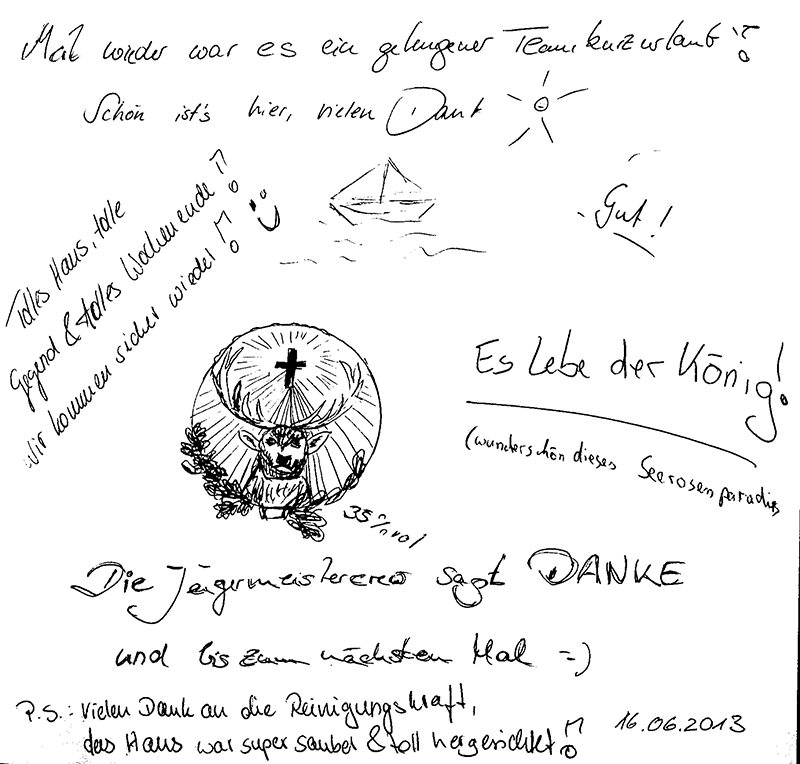 Mal wieder war es ein gelungener Teamkurzurlaub!!
Schön ist's hier, vielen Dank
Tolles Haus, tolle
Gegend & tolles Wochenende!!
Wir kommen sicher wieder!!
Gut!
Es lebe der König!
(wunderschön dieses Seerosenparadies
35%vol
Die Jägermeistercrew sagt DANKE
und bis zum nächsten Mal =)
P.S.: Vielen Dank an die Reinigungskraft,
das Haus war super sauber & toll hergerichtet!!
16.06.2013